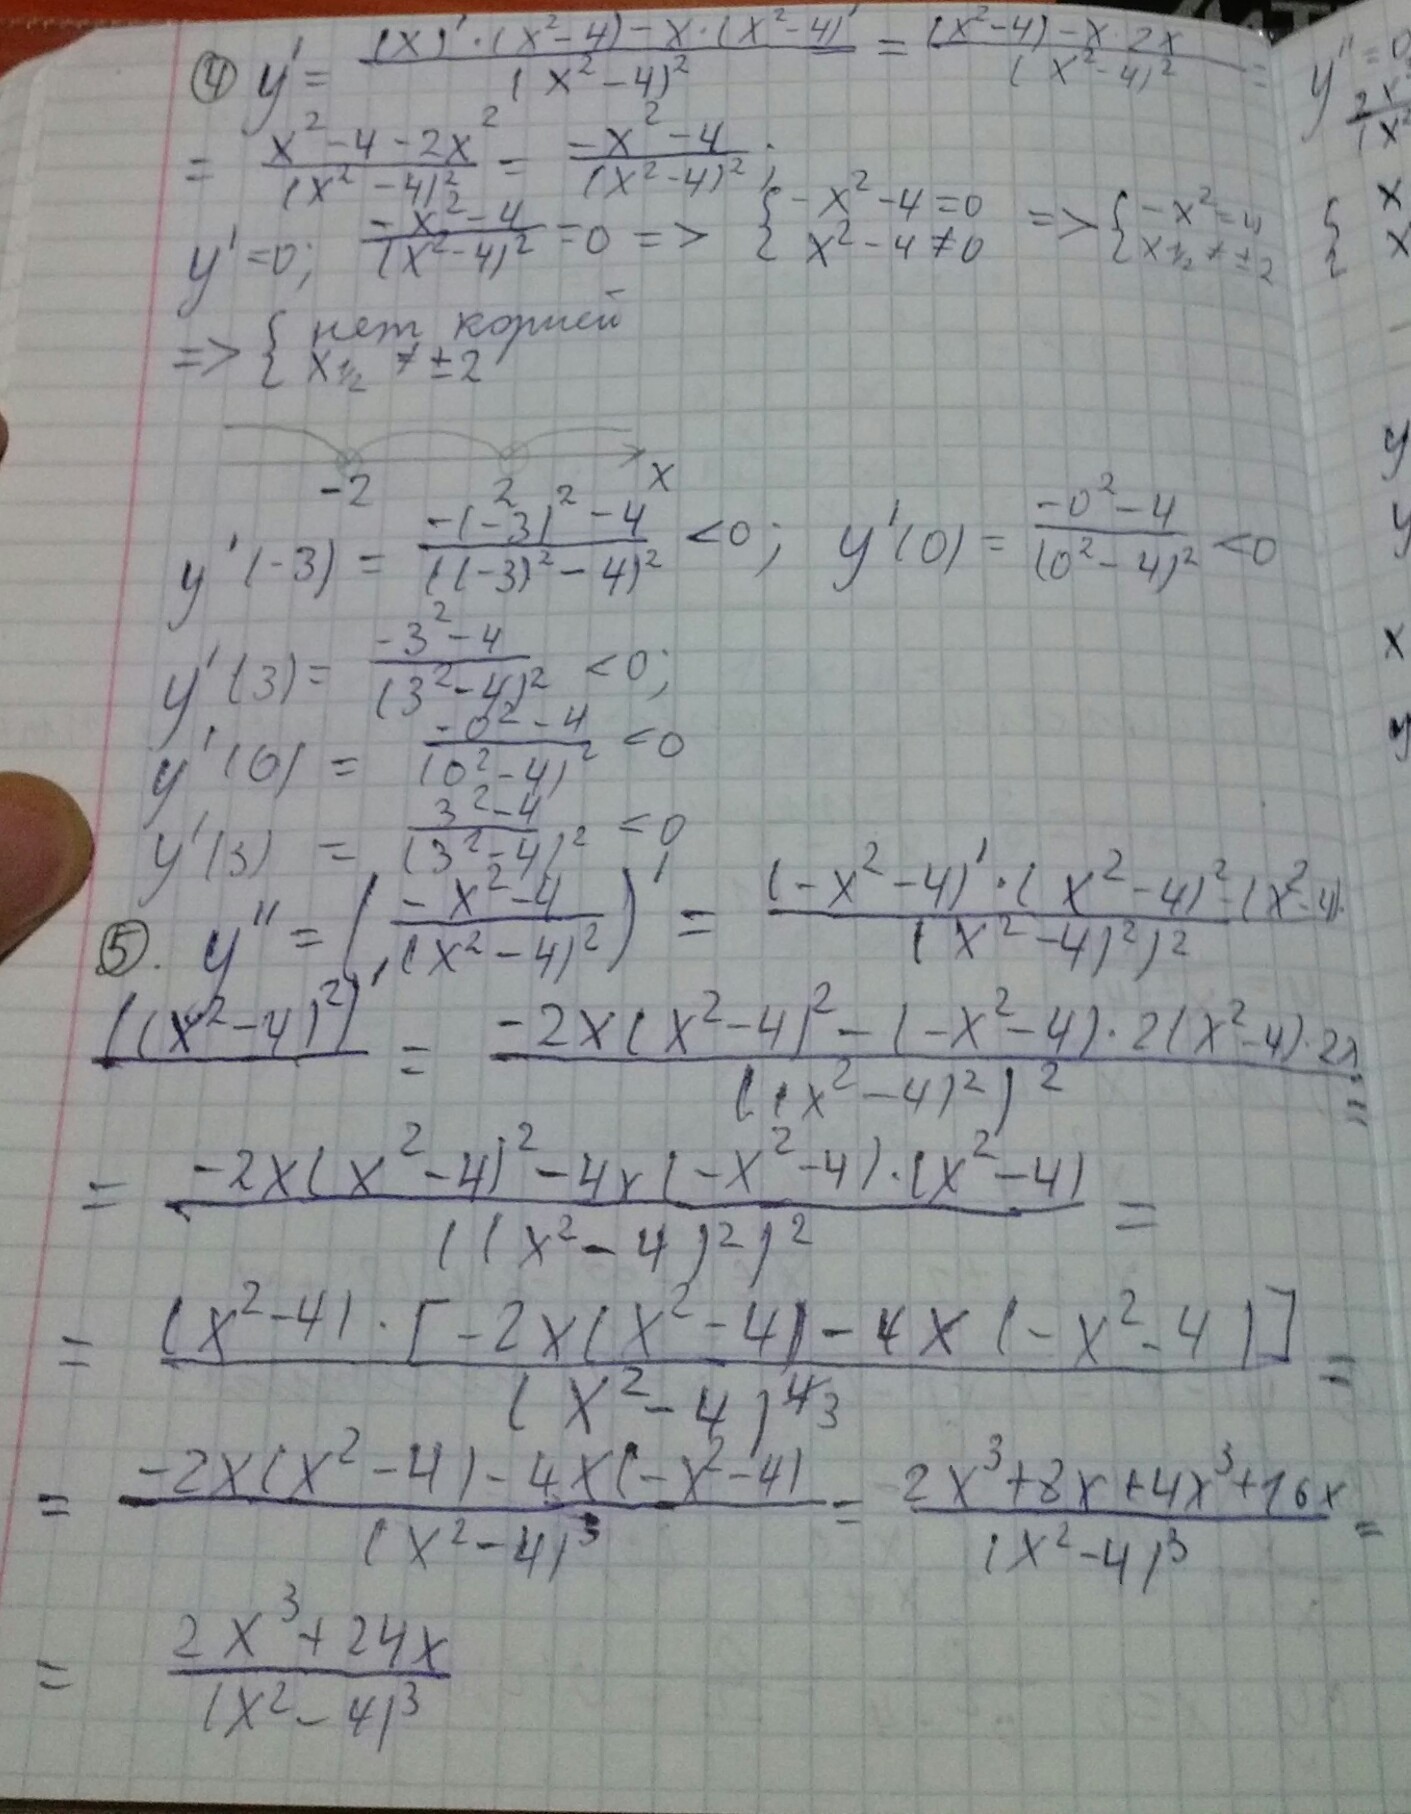 ④ y' = ((x)'·(x²-4)-x·(x²-4)')/((x²-4)²) = ((x²-4)-x·2x)/((x²-4)²) =
= (x²-4-2x²)/((x²-4)²) = (-x²-4)/((x²-4)²);
y'=0; (-x²-4)/((x²-4)²) =0 => { -x²-4=0 { x²-4≠0 => { -x²=4 { x½ ≠ ±2
=> { нет корней { x½ ≠ ±2
-2 2 x
y'(-3) = (-(-3)²-4)/(((-3)²-4)²) <0; y'(0) = (-0²-4)/((0²-4)²) <0
y'(3) = (-3²-4)/((3²-4)²) <0;
y'(0) = (-0²-4)/((0²-4)²) <0
y'(3) = (3²-4)/((3²-4)²) <0
⑤. y'' = ((-x²-4)/((x²-4)²))' = ((-x²-4)'·(x²-4)²-(x²-4)·)/((x²-4)²)²
((x²-4)²)' = (-2x(x²-4)²-(-x²-4)·2(x²-4)·2x)/(((x²-4)²)²) =
= (-2x(x²-4)²-4x(-x²-4)·(x²-4))/(((x²-4)²)²) =
= ((x²-4)·[-2x(x²-4)-4x(-x²-4)])/((x²-4)⁴3) =
= (-2x(x²-4)-4x(-x²-4))/((x²-4)³) = (2x³+8x+4x³+16x)/((x²-4)³) =
= (2x³+24x)/((x²-4)³)
y''=0
2x
(x²
{ x
{ x
y
y
x
y